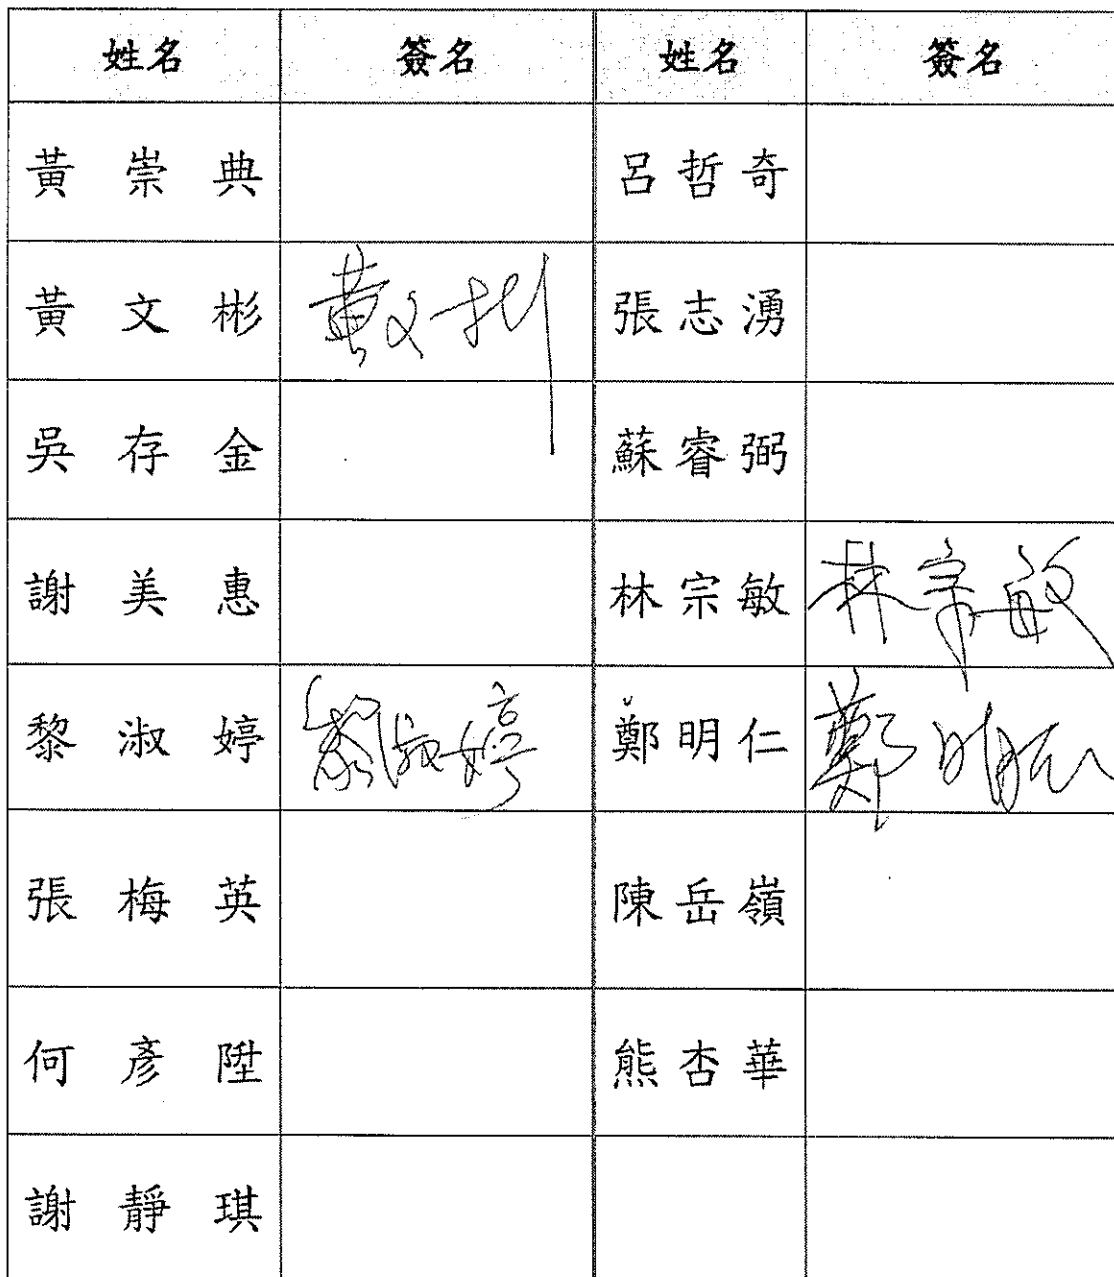 姓名 簽名 姓名 簽名
黃崇典 呂哲奇
黃文彬 黃文彬 張志湧
吳存金 蘇睿弼
謝美惠 林宗敏 林宗敏
黎淑婷 黎淑婷 鄭明仁 鄭明仁
張梅英 陳岳嶺
何彥陞 熊杏華
謝靜琪